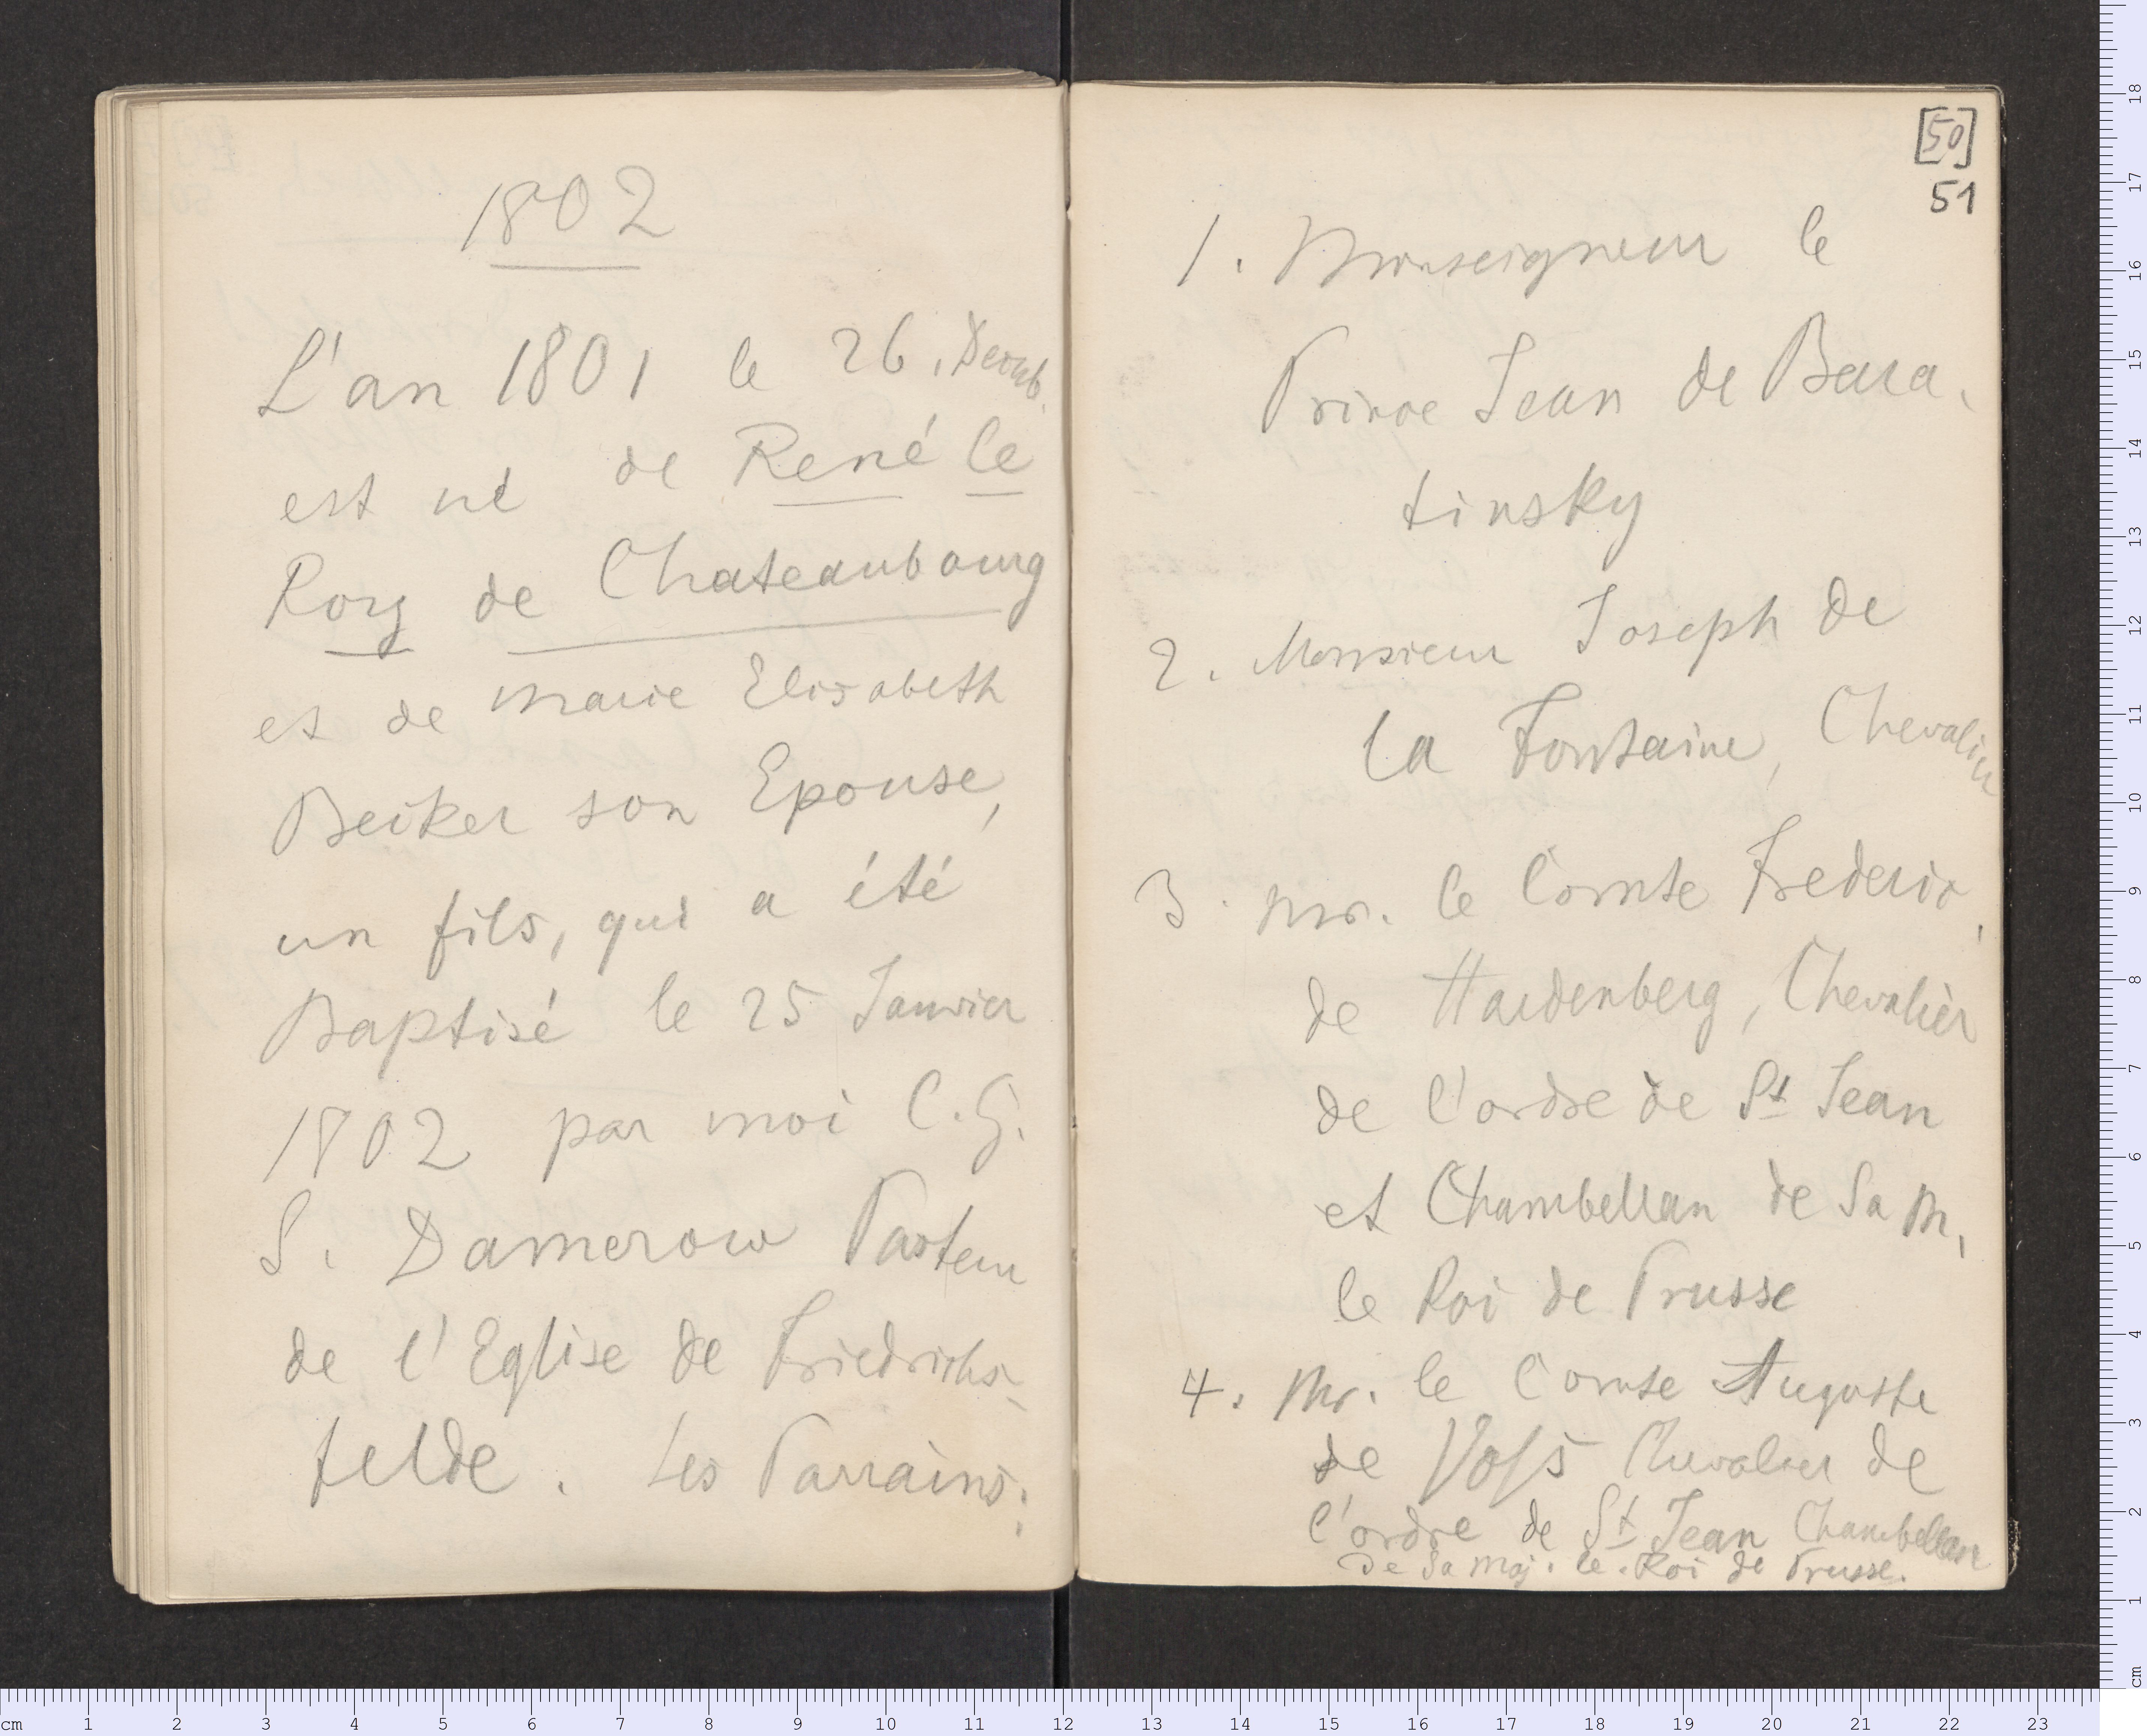 1802
L'an 1801 le 26. Decmb.
est né de René le
Roy de Chateaubourg
et de Marie Elisabeth
Beiker son Epouse,
un fils, qui a été
Baptisé le 25 Janvier
1802 par moi C. G.
S. Damerow Pasteur
de l'Eglise de Friedrichs-
felde. Les Parrains:
[50]
51
1. Monseigneur le
Prince Jean de Bara-
tinsky
2. Monsieur Joseph de
la Fontaine, Chevalier
3. Mr. le Comte Frederic
de Hardenberg, Chevalier
de l'ordre de St Jean
et Chambellan de Sa M.
le Roi de Prusse
4. Mr. le Comte Auguste
de Voſs Chevalier de
l'ordre de St Jean Chambellan
de Sa Maj. le Roi de Prusse.